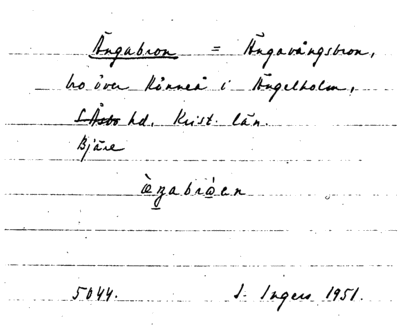 Ängabron = Ängavångsbron,
bro över Rönneå i Ängelholm,
S Åsbo hd. Krist. län.
Bjäre
5044. I. Ingers 1951.